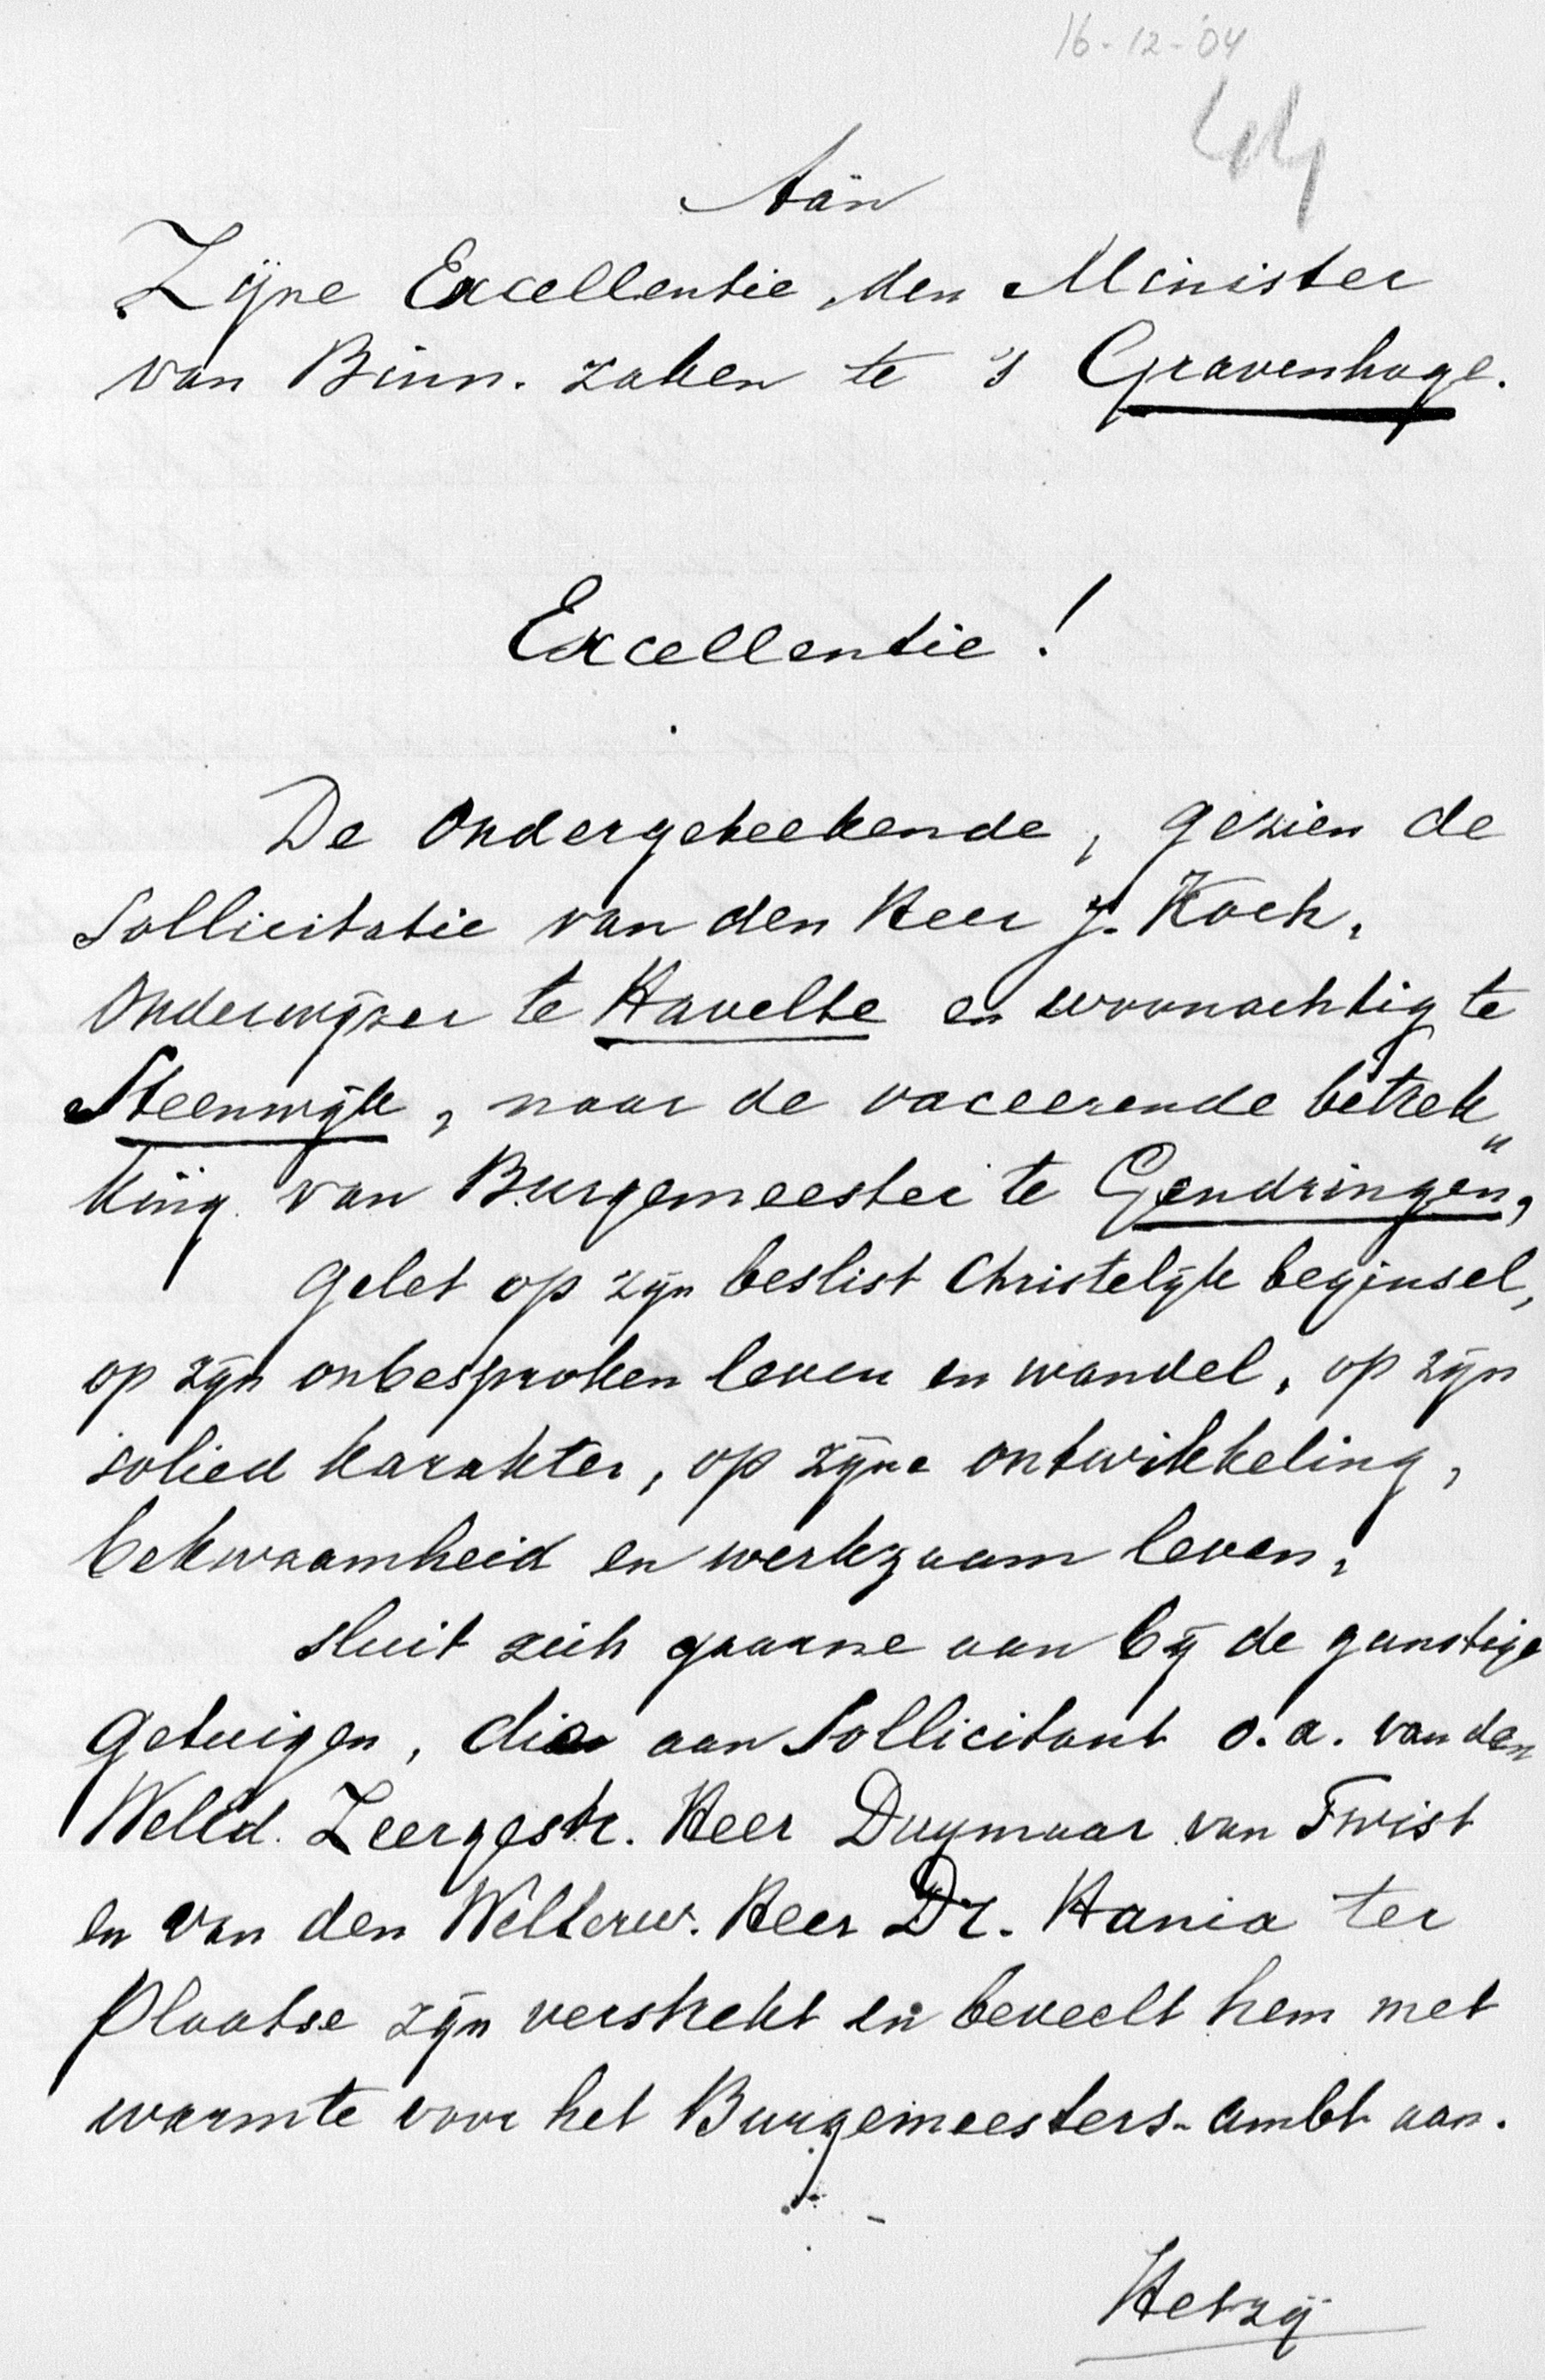 16-12-'04
44
Aan
Zijne Excellentie den Minister
van Binn. zaken te 's Gravenhage.
Excellentie!
De Ondergeteekende, gezien de
Sollicitatie van den Heer J. Kock,
Onderwijzer te Havelte en woonachtig te
Steenwijk, naar de vaceerende betrek„
king van Burgemeester te Gendringen,
Gelet op zijn beslist Christelijk beginsel,
op zijn onbesproken leven en wandel, op zijn
solied karakter, op zijne ontwikkeling,
bekwaamheid en werkzaam leven,
sluit zich gaarne aan bij de gunstige
getuigen, die aan Sollicitant o.a. van den
WelEd. Zeergestr. Heer Duymaar van Twist
en van den WelEerw. Heer Dr. Hania ter
Plaatse zijn verstrekt en beveelt hem met
warmte voor het Burgemeesters-ambt aan.
Hetzij